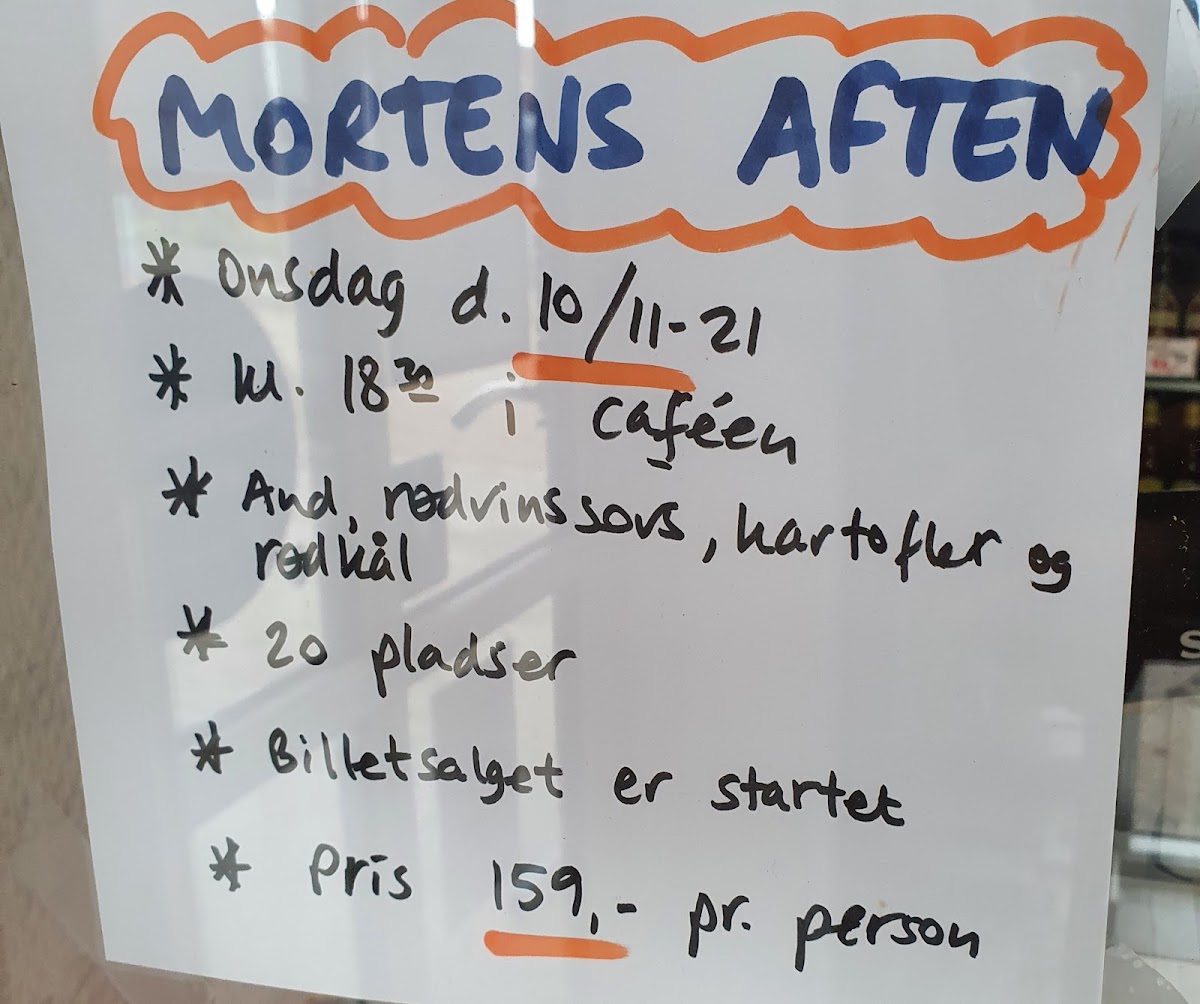 MORTENS AFTEN
* Onsdag d. 10/11-21
* kl. 18³⁰ i caféen
* And, rødvinssovs, kartofler og
rødkål
* 20 pladser
* Billetsalget er startet
* Pris 159,- pr. person